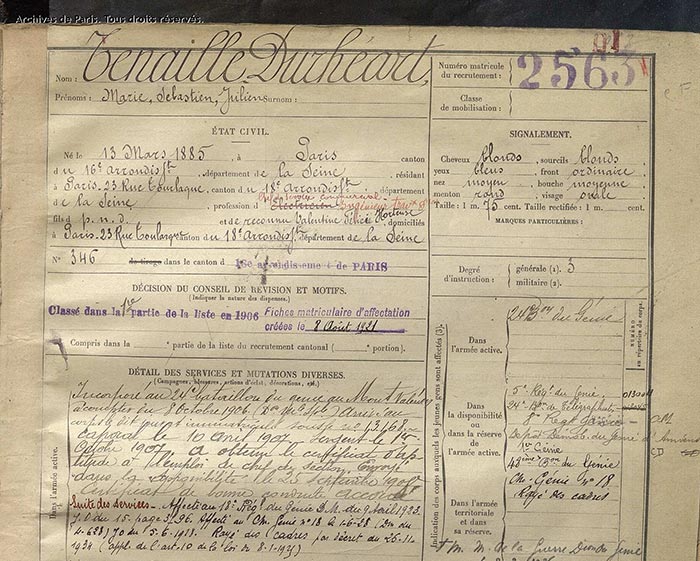 Archives de Paris. Tous droits réservés.
Nom : Tenaille Durhéart,
Prénoms : Marie, Sébastien, Julien Surnom :
Numéro matricule du recrutement : 2563
912
Classe de mobilisation :
ÉTAT CIVIL.
Né le 13 Mars 1885, à Paris canton
du 16e Arrondisst, département de la Seine, résidant
à Paris-23 Rue Tourlaque, canton du 18e Arrondisst, département
de la Seine, profession d'électricien
fils d p. n. d. et de reconnu Valentine Félicie Hortense, domiciliés
à Paris-23 Rue Tourlaque canton du 18e Arrondisst, département de la Seine
N° 346 de tirage dans le canton d 16e arrondissement de PARIS
SIGNALEMENT.
Cheveux blonds, sourcils blonds
yeux bleus, front ordinaire
nez moyen, bouche moyenne
menton rond, visage ovale
Taille : 1 m. 75 cent. Taille rectifiée : 1 m. cent.
MARQUES PARTICULIÈRES :
Degré d'instruction : générale (1). 3
militaire (2).
DÉCISION DU CONSEIL DE RÉVISION ET MOTIFS.
(Indiquer la nature des dispenses.)
Classé dans la 1re partie de la liste en 1906
Fiches matriculaire d'affectation
créées le 8 Août 1921
Compris dans la partie de la liste du recrutement cantonal ( portion).
DÉTAIL DES SERVICES ET MUTATIONS DIVERSES.
(Campagnes, blessures, actions d'éclat, décorations, etc.)
Dans l'armée active.
Incorporé au 24e bataillon du génie au Mont Valérien
à compter du 8 Octobre 1906 Arrivé au
corps le dit jour immatriculé sous le n° 13.468
caporal le 10 avril 1907 Sergent le
Octobre 1907 a obtenu le certificat d'ap
titude à l'emploi de chef de section. Envoyé
dans la disponibilité le 25 septembre 1908
Certificat de bonne conduite accordé
Suite des services. Affecté au 18e Rég. du Génie D.M. du 9 Avril 1923.
J.O. du 15. page 3.96. Affecté au Ch. Génie n° 18 le 1-6-28
4-628) Jo du 5.6.1928. Rayé des cadres par décret du 26-11
1934 (appl. de l'art. 10 de la loi du 8-1-1925)
Indication des corps auxquels les jeunes gens sont affectés (3).
Dans l'armée active.
24e Bon du Génie
NUMÉRO au répertoire du corps.
Dans la disponibilité ou dans la réserve de l'armée active.
5e Régt du Génie
24e Bon de Télégraphistes
8e Régt Génie
1er Génie
Bon du Génie
Ch. Génie n° 18
Rayé des cadres
Dans l'armée territoriale et dans sa réserve.